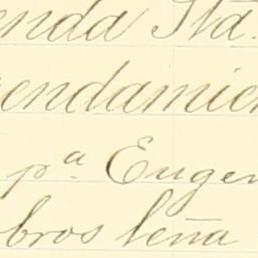 enda Sta.
endamien
pª Eugen
bros leña